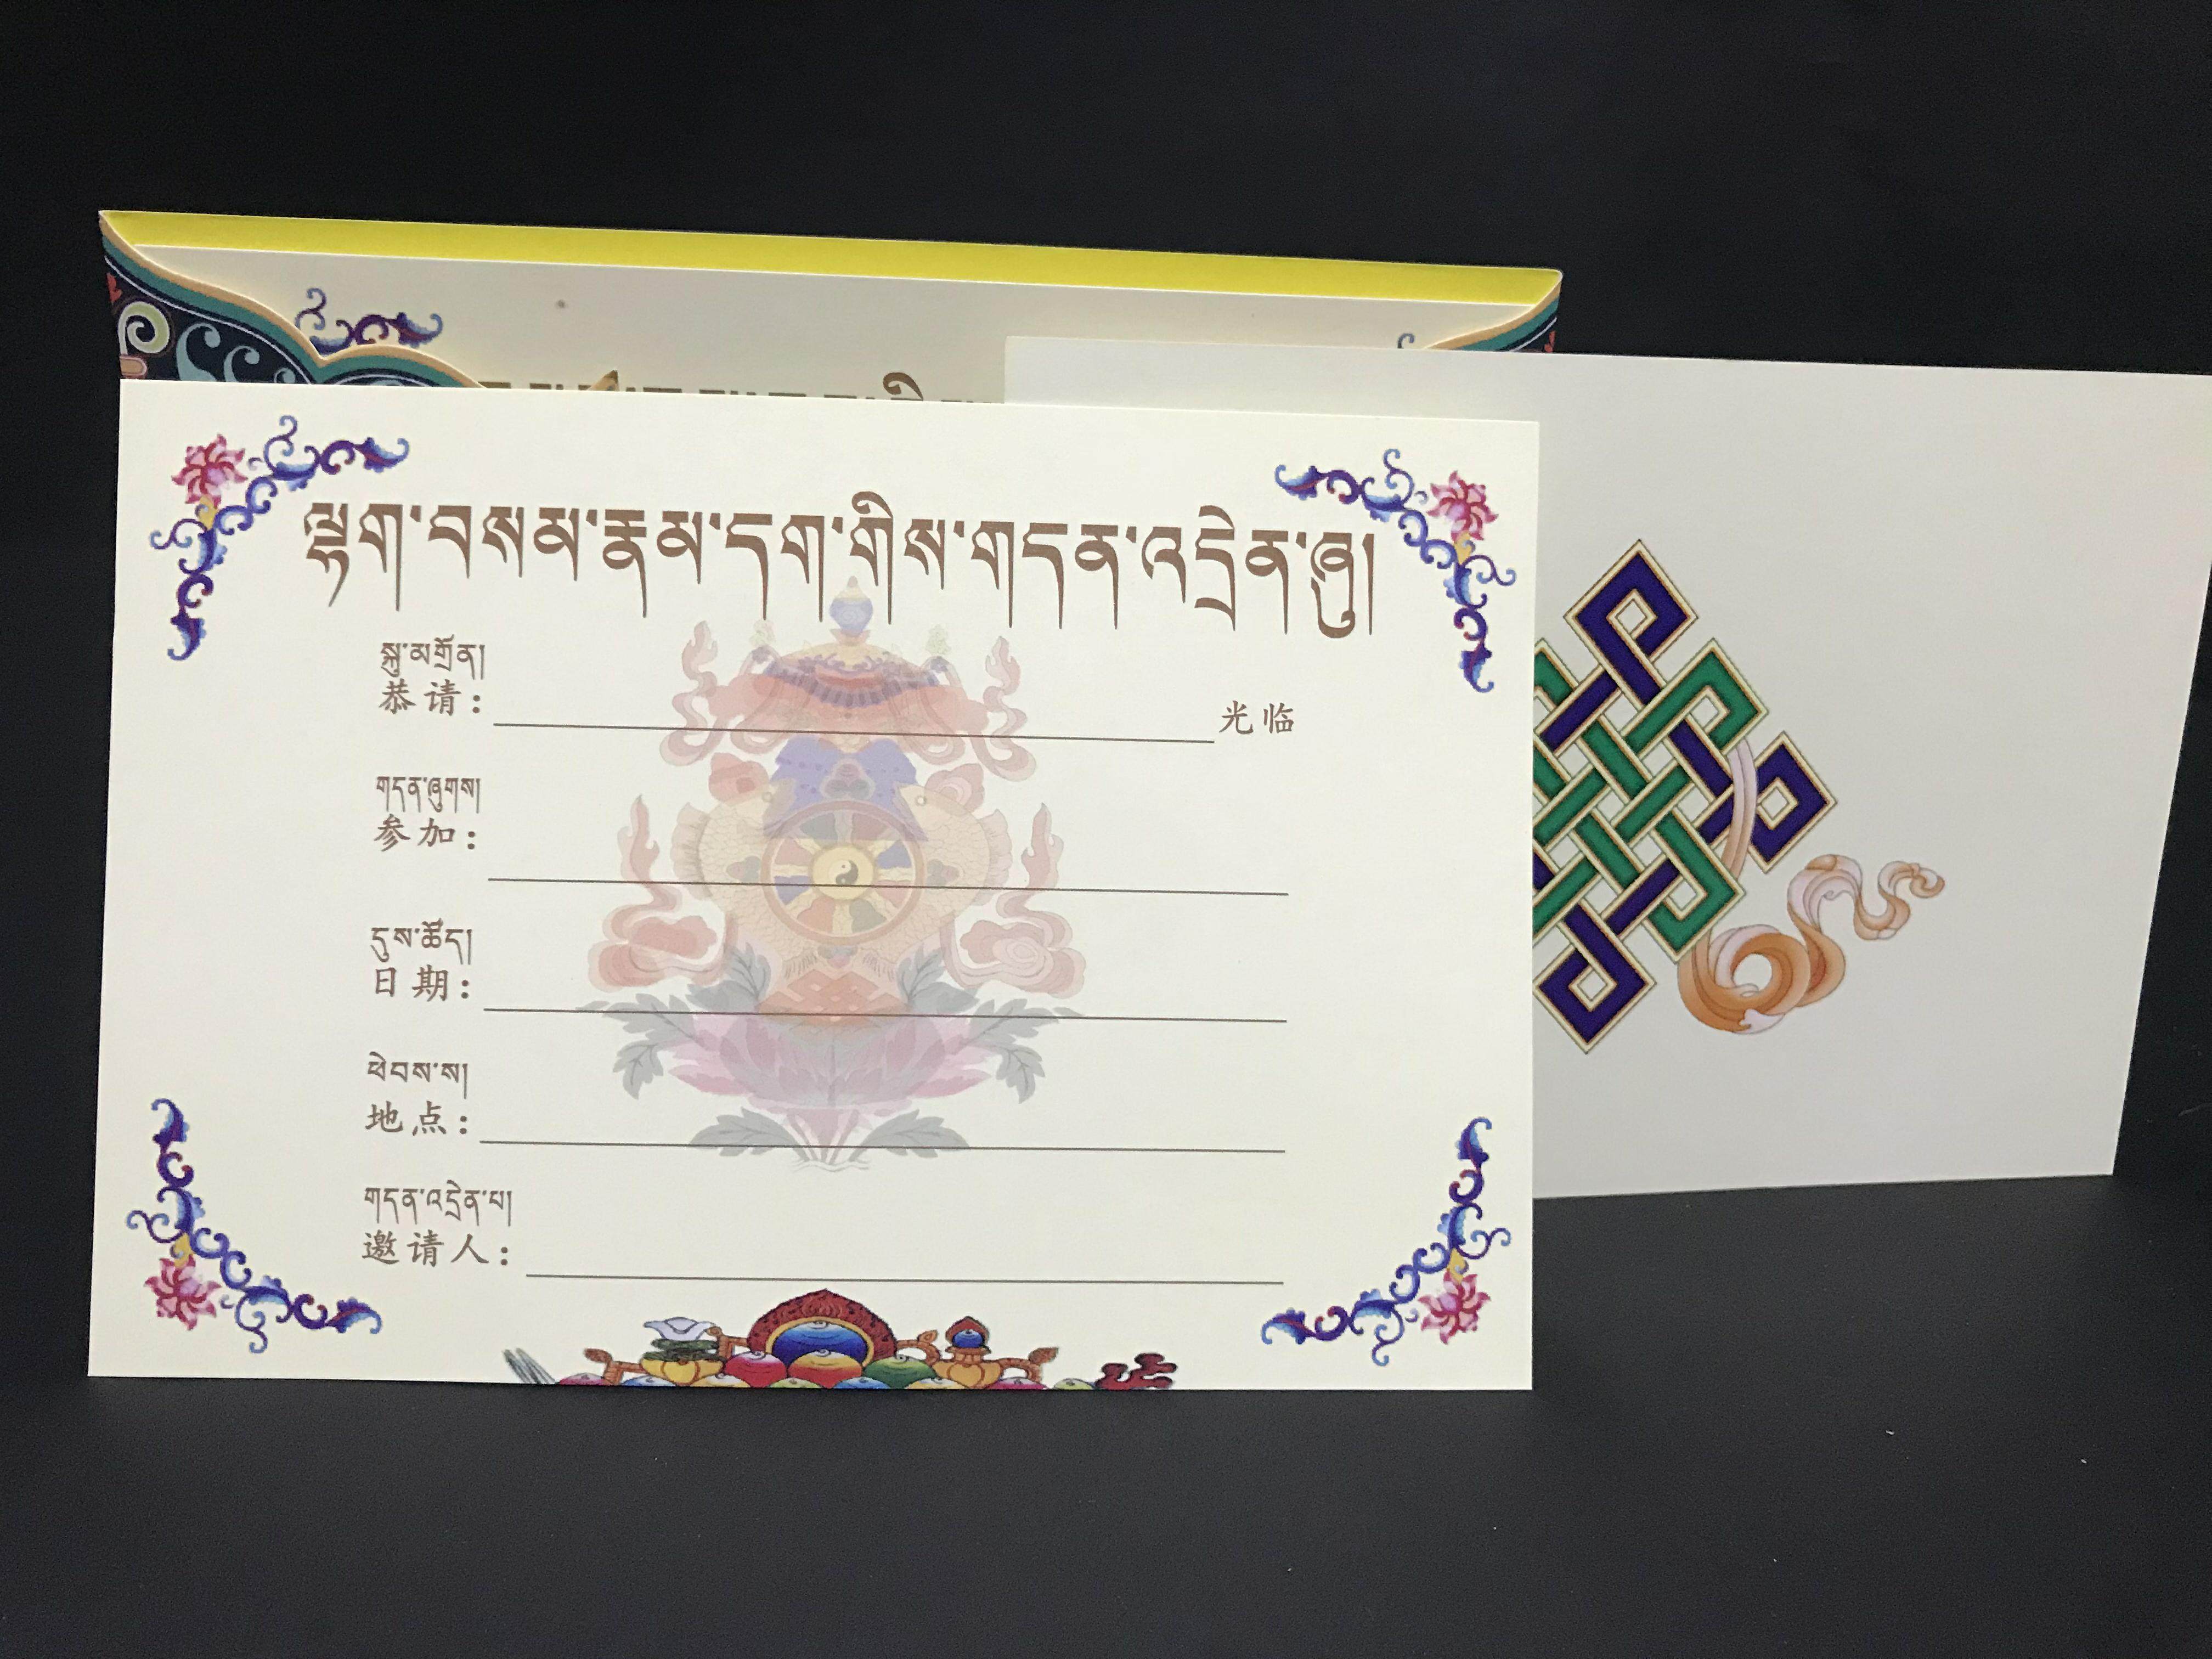 ལྷག་བསམ་རྣམ་དག་གིས་གདན་འདྲེན་ཞུ།
སྐུ་མགྲོན།
恭请： 光临
གདན་ཞུགས།
参加：
དུས་ཚོད།
日期：
ཕེབས་ས།
地点：
གདན་འདྲེན་པ།
邀请人：